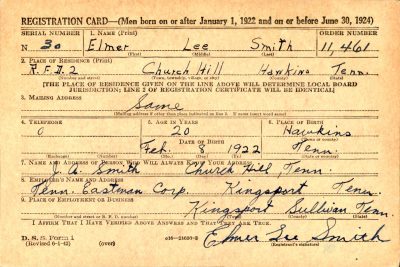 REGISTRATION CARD—(Men born on or after January 1, 1922 and on or before June 30, 1924)
SERIAL NUMBER 1. NAME (Print) ORDER NUMBER
N 30 Elmer Lee Smith 11,461
(First) (Middle) (Last)
2. PLACE OF RESIDENCE (Print)
R.F.D.2 Church Hill Hawkins Tenn.
(Number and street) (Town, township, village, or city) (County) (State)
[THE PLACE OF RESIDENCE GIVEN ON THE LINE ABOVE WILL DETERMINE LOCAL BOARD
JURISDICTION; LINE 2 OF REGISTRATION CERTIFICATE WILL BE IDENTICAL]
3. MAILING ADDRESS
Same
(Mailing address if other than place indicated on line 2. If same insert word same)
4. TELEPHONE 5. AGE IN YEARS 6. PLACE OF BIRTH
0 20 Hawkins
DATE OF BIRTH (Town or county)
Feb. 8 1922 Tenn.
(Exchange) (Number) (Mo.) (Day) (Yr.) (State or country)
7. NAME AND ADDRESS OF PERSON WHO WILL ALWAYS KNOW YOUR ADDRESS
Smith Church Hill, Tenn.
8. EMPLOYER'S NAME AND ADDRESS
Tenn. Eastman Corp. Kingsport Tenn.
9. PLACE OF EMPLOYMENT OR BUSINESS
Kingsport Sullivan Tenn.
(Number and street or R. F. D. number) (Town) (County) (State)
I AFFIRM THAT I HAVE VERIFIED ABOVE ANSWERS AND THAT THEY ARE TRUE.
D. S. S. Form 1
(Revised 6-1-42) (over) Elmer Lee Smith
(Registrant's signature)